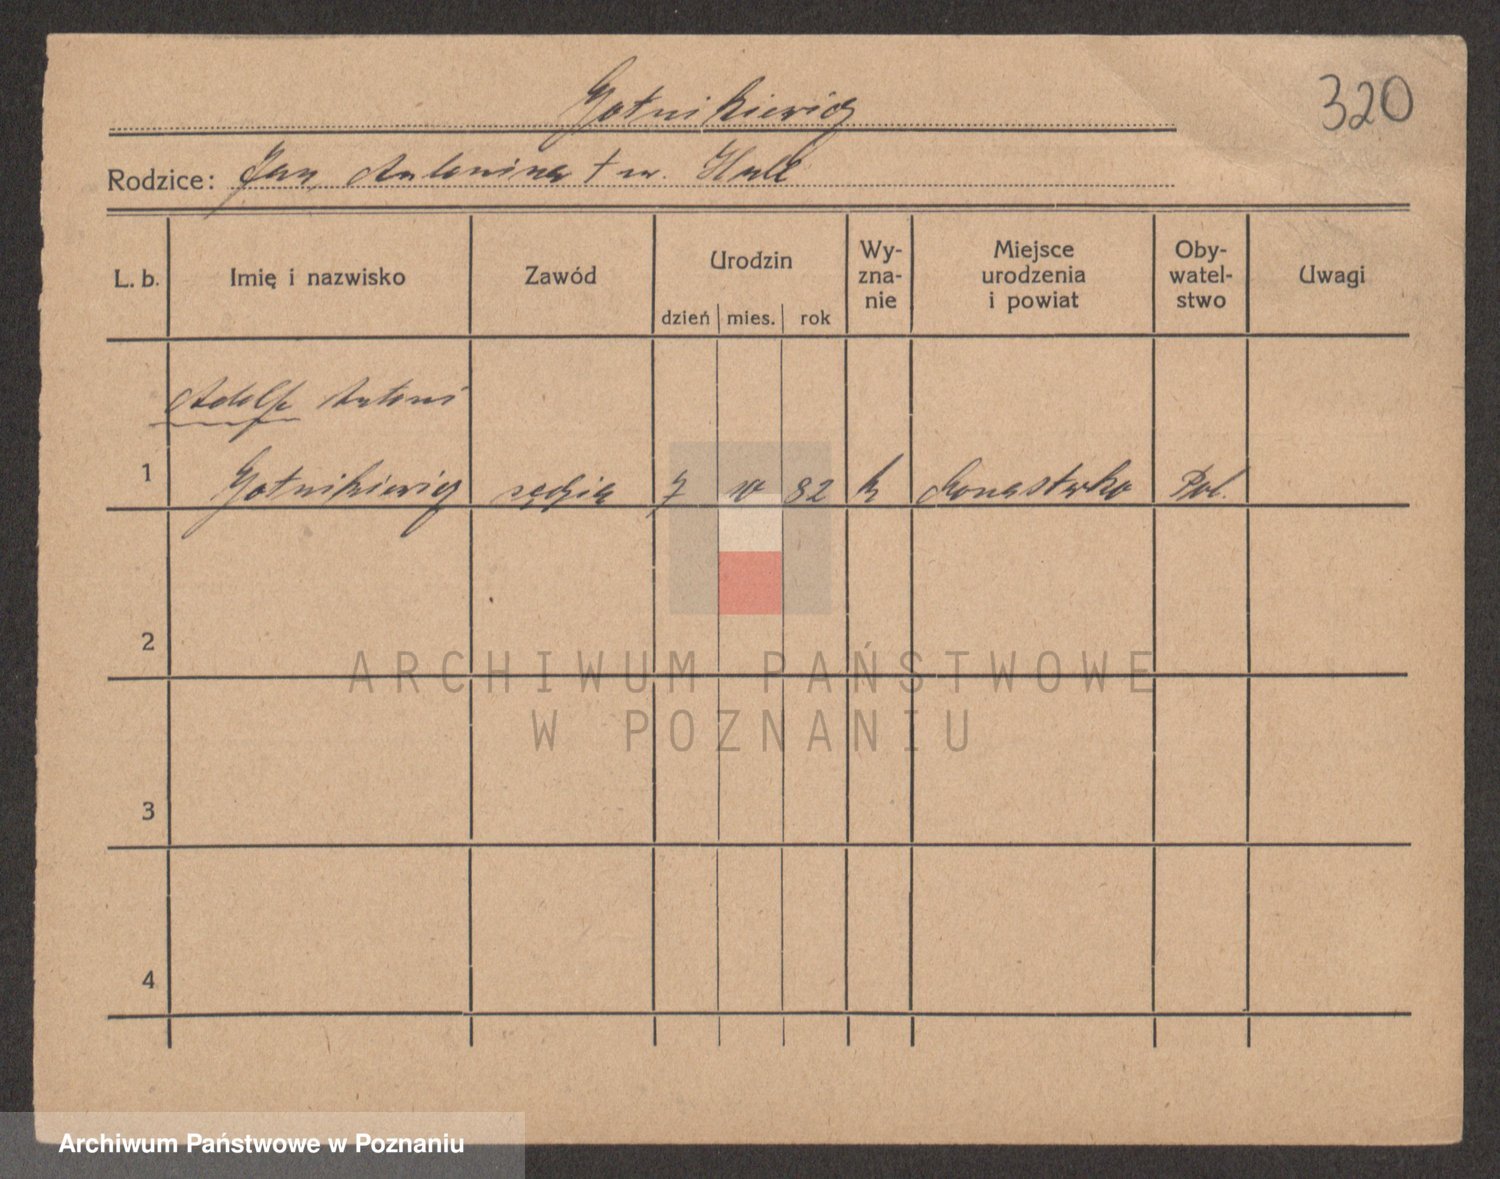 320
Gołnikiewicz
Rodzice: Jan, Antonina + w. Hall
L. b. Imię i nazwisko Zawód Urodzin dzień mies. rok Wy- zna- nie Miejsce urodzenia i powiat Oby- watel- stwo Uwagi
Adolf Antoni
1 Gołnikiewicz sędzia 7 82 k Pol.
2
ARCHIWUM PAŃSTWOWE
W POZNANIU
3
4
Archiwum Państwowe w Poznaniu